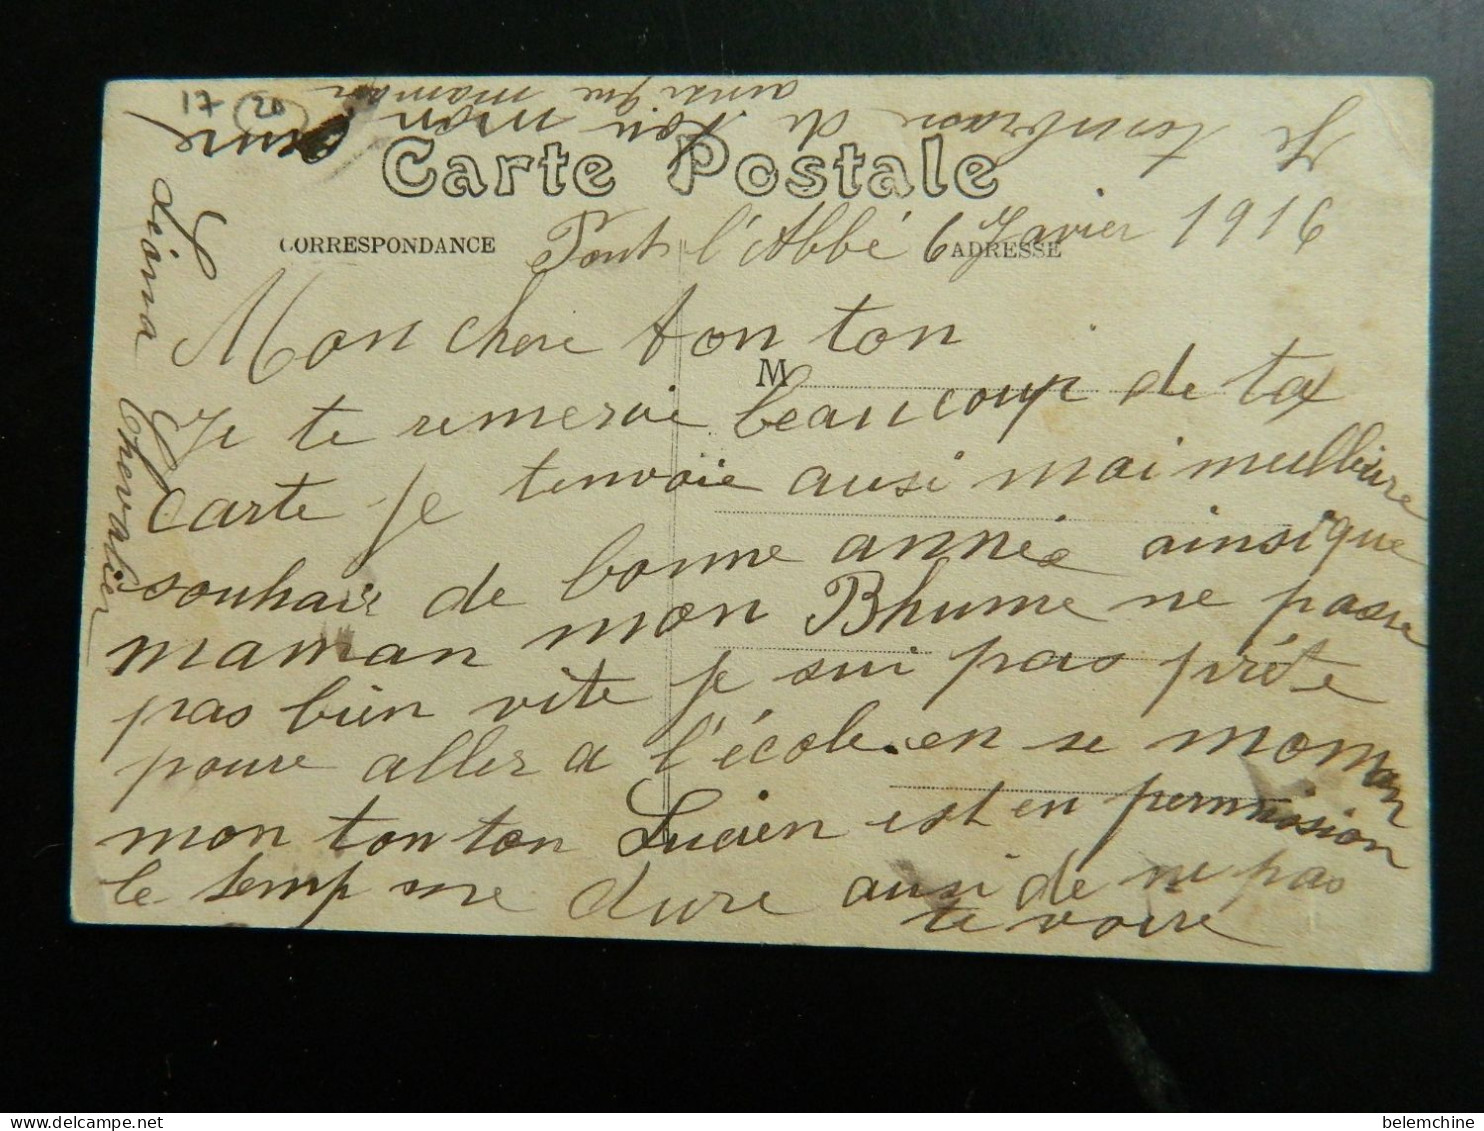 17 20
Carte Postale
CORRESPONDANCE
ADRESSE
Pont l'Abbé 6 Javier 1916
M
Mon chere ton ton
Je te remercie beaucoup de ta
Carte Je tenvoie ausi mai meilleure
souhair de bonne année ainsi que
maman mon Bhume ne passe
pas bien vite je sui pas prête
poure aller a l'école. en se moman
mon ton ton Lucien est en permision
le temp me dure ausi de ne pas
te voire
Je tembrase de
ainsi que maman
Léona Chevalier
belemchine